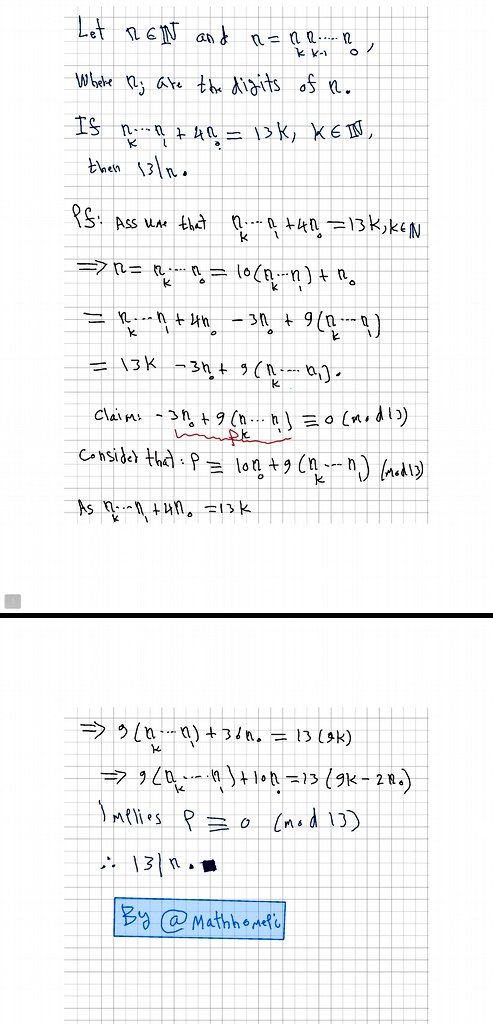 Let n ∈ ℕ and n = nₖ nₖ₋₁ ..... n₀,
Where nⱼ are the digits of n.
If nₖ...n₁ + 4n₀ = 13K, K ∈ ℕ,
then 13|n.
Pf: Assume that nₖ...n₁ + 4n₀ = 13K, K ∈ ℕ
⟹ n = nₖ....n₀ = 10(nₖ...n₁) + n₀
= nₖ...n₁ + 4n₀ - 3n₀ + 9(nₖ...n₁)
= 13K - 3n₀ + 9(nₖ....n₁).
Claim: -3n₀ + 9(nₖ...n₁) ≡ 0 (mod 13)
P
Consider that: P ≡ 10n₀ + 9(nₖ...n₁) (mod 13)
As nₖ...n₁ + 4n₀ = 13K
⟹ 9(nₖ...n₁) + 36n₀ = 13(9K)
⟹ 9(nₖ....n₁) + 10n₀ = 13(9K - 2n₀)
Implies P ≡ 0 (mod 13)
∴ 13|n. ■
By @Mathhomepi